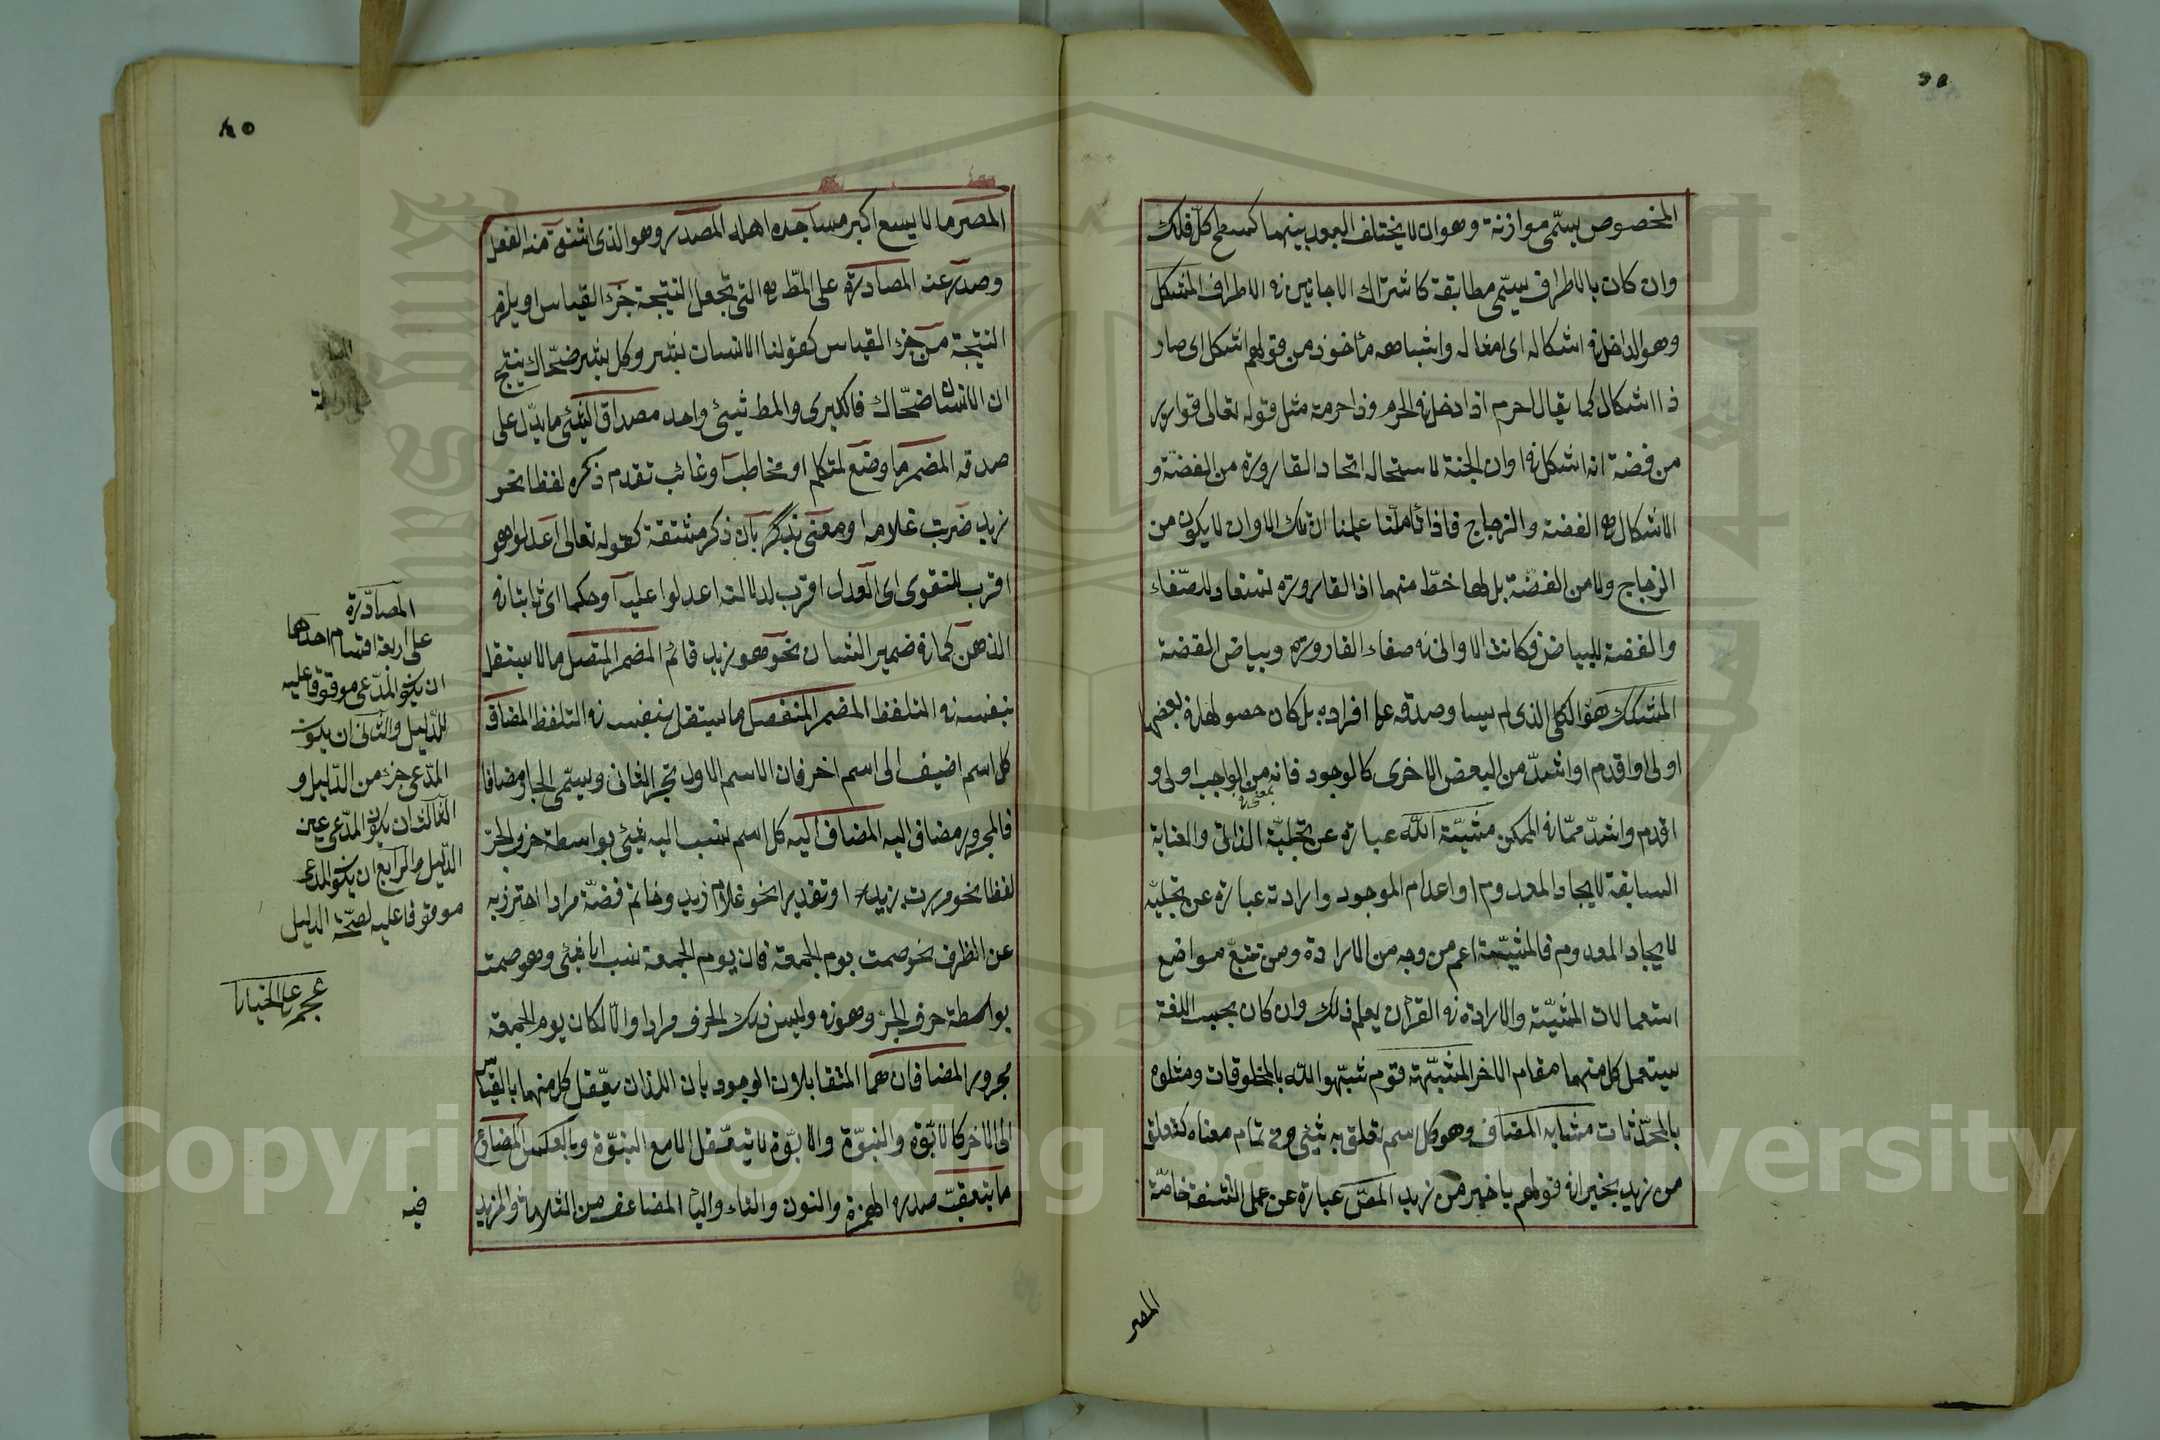 المخصوص يسمّى موازنة وهو ان لا يختلف البعد بينهما كسطح كلّ فلك
وان كان بالاطراف يسمّى مطابقة كاشتراك الاجانين في الاطراف المشكل
وهو الداخل في اشكاله اى امثاله واشباهه مأخوذ من قولهم اشكل اى صار
ذا اشكال كما يقال احرم اذا دخل في الحرم وذا حرمة مثل قوله تعالى قوارير
من فضة انه اشكل في اوان الجنة لاستحاله اتحاد القارورة من الفضّة و
الاشكال هي الفضة والزجاج فاذا تأملنا علمنا ان تلك الاوان لا يكون من
الزجاج ولا من الفضة بل لها حظّ منهما اذ القارورة تستعار للصّفاء
والفضة للبياض فكانت الاوانى في صفاء القارورة وبياض الفضة
المشكك هو الكلى الذى لم يتساو صدقه على افراده بل كان حصولها في بعضها
اولى او اقدم او اشدّ من البعض الاخرى كالوجود فانه من الواجب اولى و
اقدم واشدّ ممّا في الممكن مشيّة اللّه عبارة عن تجليّة الذاتى والعناية
السابقة لايجاد المعدوم او اعدام الموجود وارادته عبارة عن تجليّه
لايجاد المعدوم فالمشيّة اعم من وجه من الارادة ومن تتبع مواضع
استعمالات المشيّة والارادة في القرآن يعلم ذلك وان كان بحسب اللغة
يستعمل كل منهما مقام الاخر المشبّهة قوم شبّهوا اللّه بالمخلوقات ومثلوه
بالمحدثات مشابه المضاف وهو كل اسم تعلق به شئ وهو تمام معناه كتعلق
من زيد بخيرا في قولهم يا خيرا من زيد المصّ عبارة عن عمل الشفة خاصّة
المصر
المصر ما لا يسع اكبر مساجده اهله المصدر وهو الذى اشتق منه الفعل
وصدر عنه المصادرة على المطّ هي التى تجعل النتيجة جزء القياس او يلزم
النتيجة من جزء القياس كقولنا الانسان بشر وكل بشر ضحّاك ينتج
ان الانسان ضحّاك فالكبرى والمط شيئ واحد مصداق الشئ ما يدّل على
صدقه المضمر ما وضع لمتكلم او مخاطب او غائب تقدم ذكره لفظا نحو
زيد ضربت غلامه او معنى بان ذكر مشتقة كقوله تعالى اعدلوا هو
اقرب للتقوى اى العدل اقرب لدلالة اعدلوا عليه او حكما اى ثابتا في
الذهن كما في ضمير الشان نحو هو زيد قائم المضمر المتصل ما لا يستقل
بنفسه في التلفظ المضمر المنفصل ما يستقل بنفسه في التلفظ المضاف
كل اسم اضيف الى اسم اخر فان الاسم الاول يجر الثانى ويسمّى الجار مضافا
فالمجرور مضاف اليه المضاف اليه كل اسم نسب اليه شئ بواسطة حرف الجرّ
لفظا نحو مررت بزيد او تقديرا نحو غلام زيد وخاتم فضّة مرادا احترز به
عن الظرف نحو صمت يوم الجمعة فان يوم الجمعة نسب اليه شئ وهو صمت
بواسطة حرف الجرّ وهو في وليس ذلك الحرف مرادا والّا لكان يوم الجمعة
مجرورا المضافان هما المتقابلان الوجوديان اللذان يعقل كل منهما بالقياس
الى الاخر كالابّوة والنبوّة والابّوة لا يتعقّل الا مع النبوّة وبالعكس المضارع
ما يتعقب صدره الهمزة والنون والتاء والياء المضاعف من الثلاثى والمزيد
فيه
المصادرة
على اربعة اقسام احدها
ان يكون المدّعى موقوفا عليه
للدليل والثانى ان يكون
المدّعى جزء من الدليل و
الثالث ان يكون المدّعى عين
الدليل والرابع ان يكون المدعى
موقوفا عليه لصحّة الدليل
Copyright © King Saud University
1957